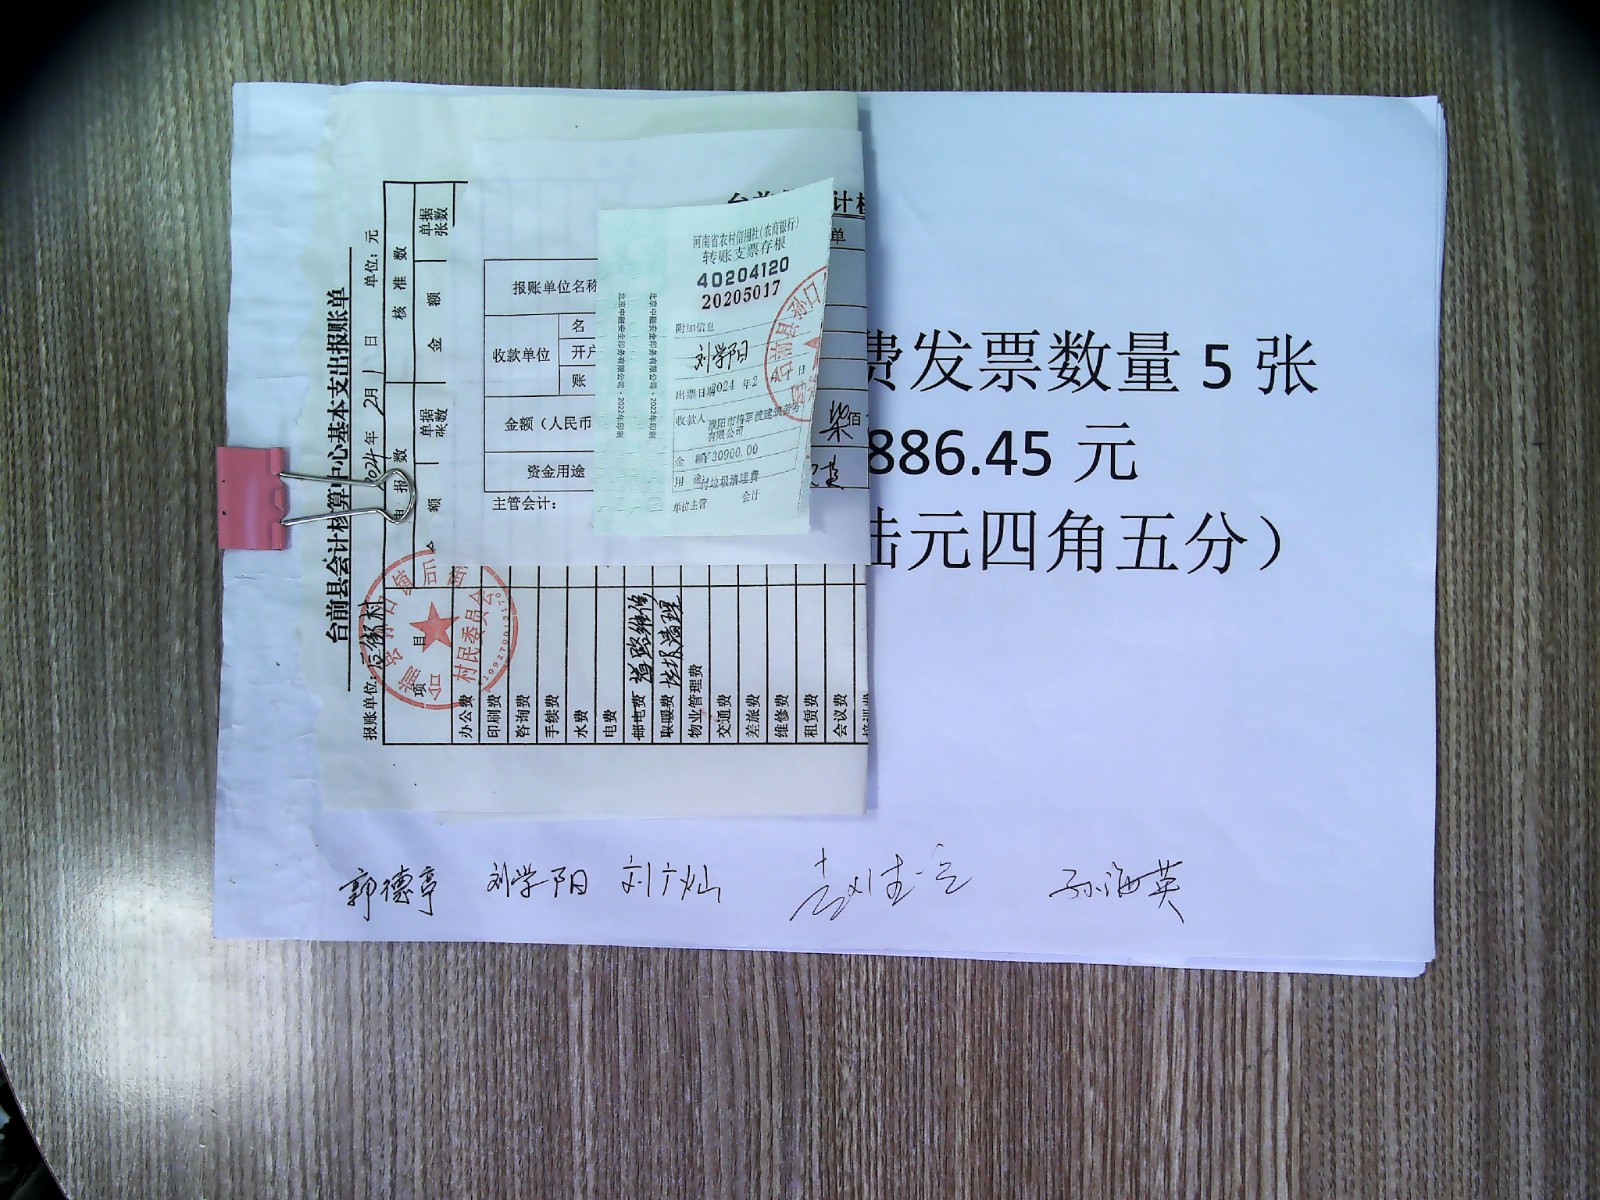 台前县会计核算中心基本支出报账单
报账单位:后街村
2024年2月1日
单位:元
项目
申报数
核准数
金额
单据张数
金额
单据张数
办公费
印刷费
咨询费
手续费
水费
电费
邮电费 道路维修
取暖费 垃圾清理
物业管理费
交通费
差旅费
维修费
租赁费
会议费
村民委员会
计核
单
报账单位名称
收款单位
名
开户
账
金额(人民币
柒佰
资金用途
主管会计:
河南省农村信用社(农商银行)
转账支票存根
40204120
20205017
附加信息
刘学阳
出票日期2024年2月 日
收款人 濮阳市将军渡建筑劳务
有限公司
金额¥30900.00
用途 村垃圾清理费
单位主管 会计
北京中融安全印务有限公司·2022年印制
北京中融安全印务有限公司·2022年印制
费发票数量 5 张
886.45 元
陆元四角五分）
郭德亭 刘学阳 刘广灿 孙海英